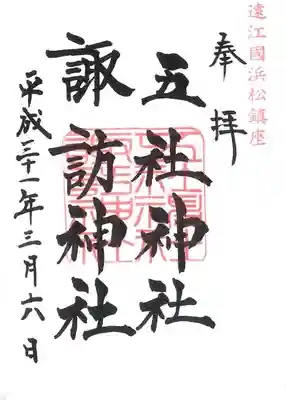 遠江國浜松鎮座
奉拝
五社神社
諏訪神社
平成三十一年三月六日